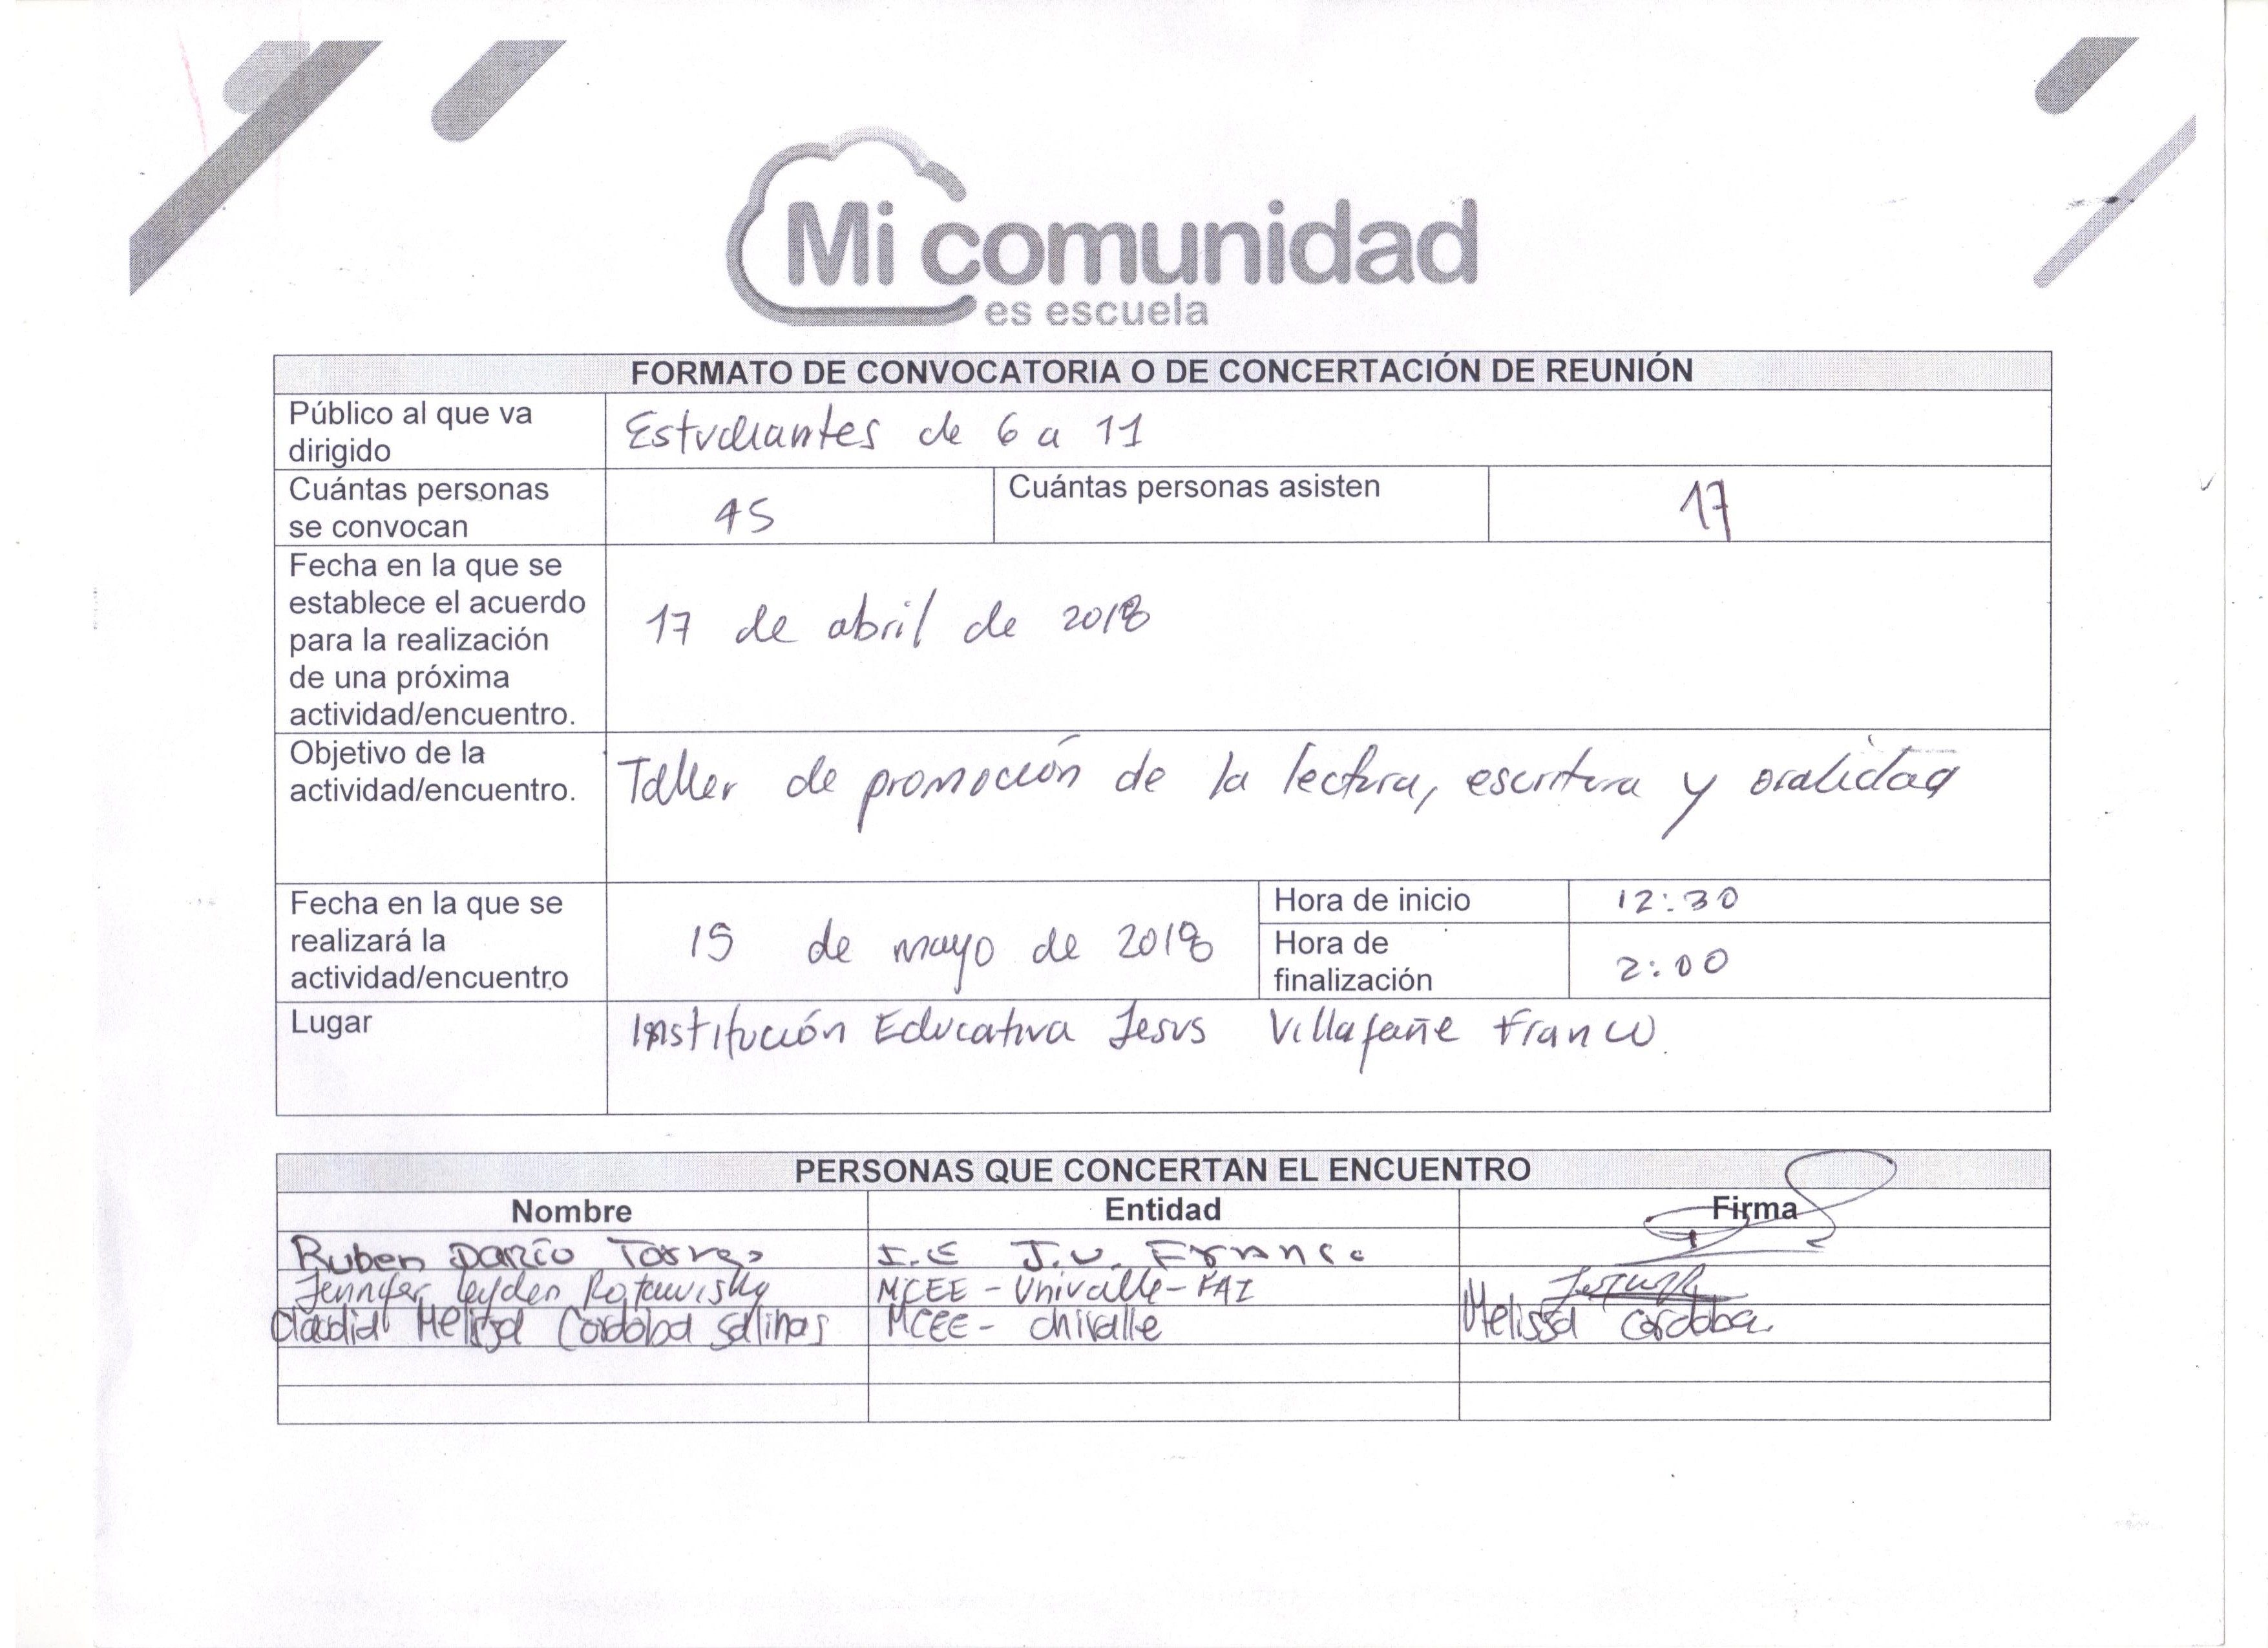 Mi comunidad
es escuela
FORMATO DE CONVOCATORIA O DE CONCERTACIÓN DE REUNIÓN
Público al que va
dirigido
Estudiantes de 6 a 11
Cuántas personas
se convocan
45
Cuántas personas asisten
17
Fecha en la que se
establece el acuerdo
para la realización
de una próxima
actividad/encuentro.
17 de abril de 2018
Objetivo de la
actividad/encuentro.
Taller de promoción de la lectura, escritura y oralidad
Fecha en la que se
realizará la
actividad/encuentro
15 de mayo de 2018
Hora de inicio
12:30
Hora de
finalización
2:00
Lugar
Institución Educativa Jesus Villafañe Franco
PERSONAS QUE CONCERTAN EL ENCUENTRO
Nombre Entidad Firma
Ruben Darío Torres I.E J.V. Franco
Jennifer Leyden Rotawisky MCEE - Univalle - FAI
Claudia Melissa Cordoba Salinas MCEE - Univalle Melissa Cordoba